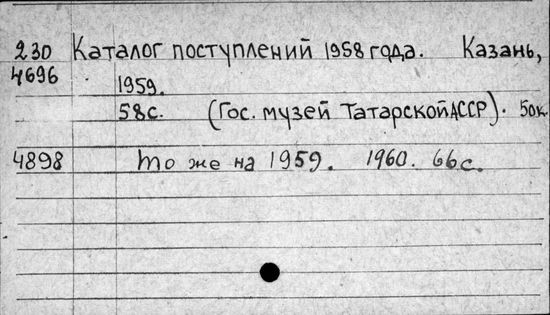 230 Каталог поступлений 1958 года. Казань,
4696 1959.
58с. (Гос. музей Татарской АССР). 50к.
4898 то же на 1959. 1960. 66с.